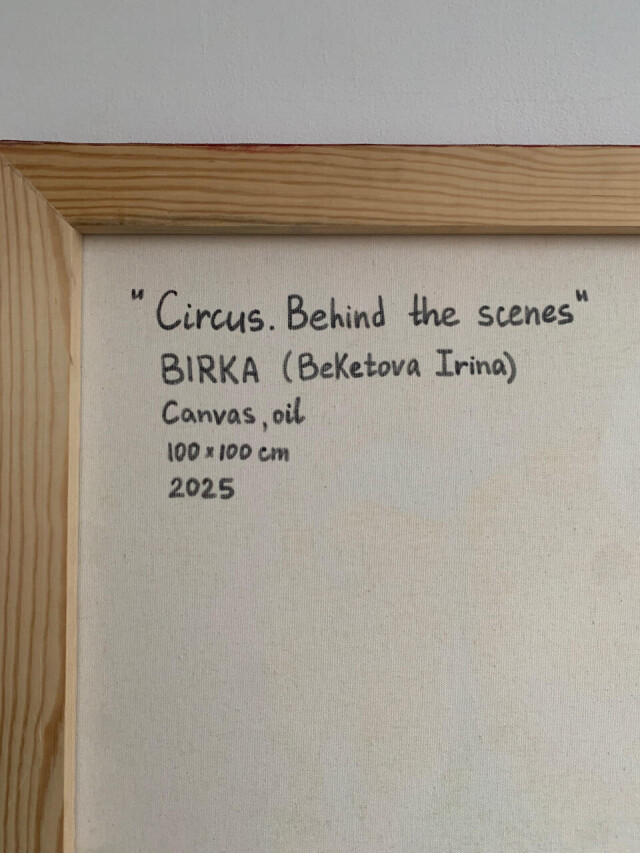 "Circus. Behind the scenes"
BIRKA (Beketova Irina)
Canvas, oil
100 x 100 cm
2025